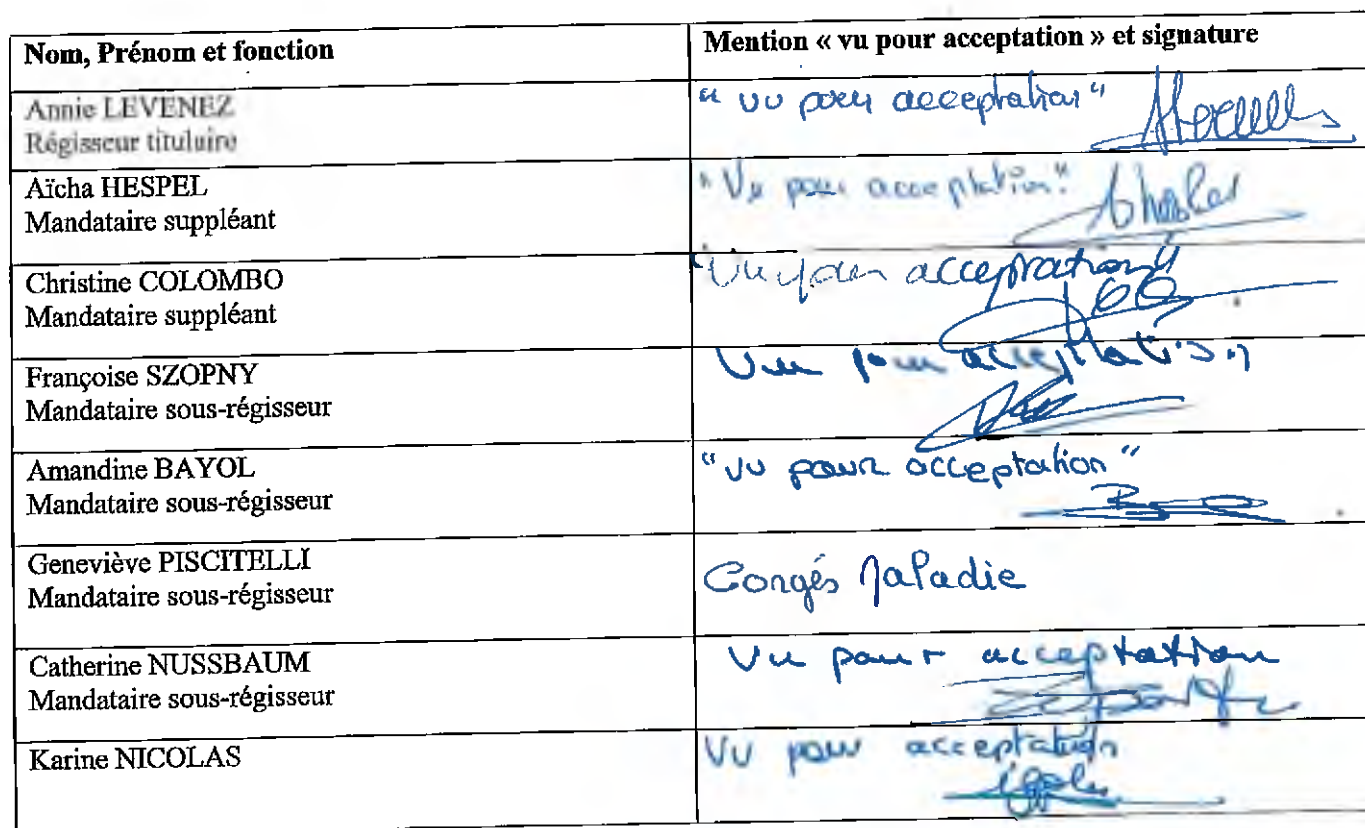 Nom, Prénom et fonction
Mention « vu pour acceptation » et signature
Annie LEVENEZ
Régisseur titulaire
" vu pour acceptation"
Aïcha HESPEL
Mandataire suppléant
"Vu pour acceptation"
Christine COLOMBO
Mandataire suppléant
"Vu pour acceptation"
Françoise SZOPNY
Mandataire sous-régisseur
Vu pour acceptation
Amandine BAYOL
Mandataire sous-régisseur
"Vu pour acceptation"
Geneviève PISCITELLI
Mandataire sous-régisseur
Congés Maladie
Catherine NUSSBAUM
Mandataire sous-régisseur
Vu pour acceptation
Karine NICOLAS
Vu pour acceptation